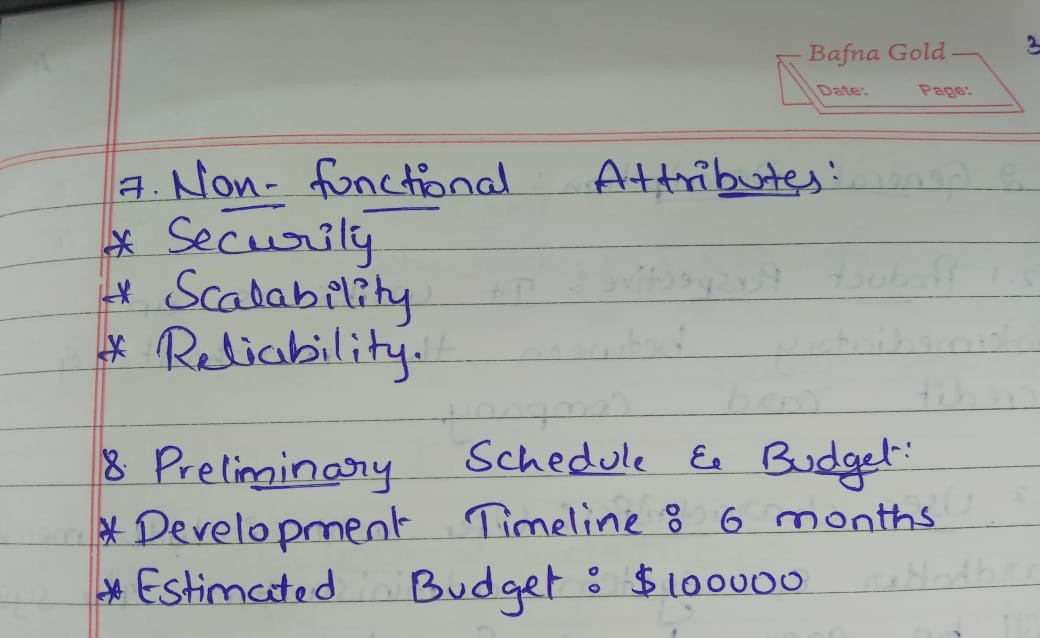 Bafna Gold
3
Date: Page:
7. Non-functional Attributes:
* Security
* Scalability
* Reliability.
8. Preliminary Schedule & Budget:
* Development Timeline: 6 months
* Estimated Budget: $100000